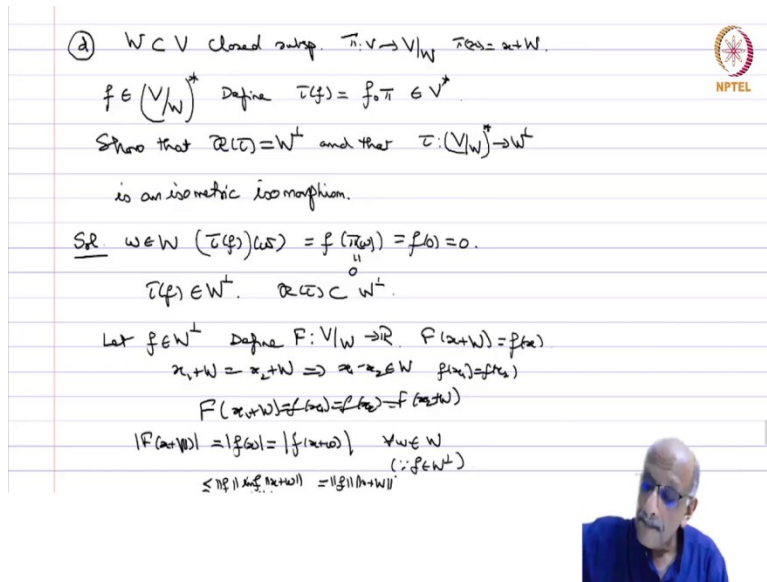 (d) W ⊂ V closed subsp. π: V → V/W π(x) = x+W.
NPTEL
f ∈ (V/W)* Define τ(f) = f∘π ∈ V*
Show that R(τ) = W⊥ and that τ: (V/W)* → W⊥
is an isometric isomorphism.
Sol. w ∈ W (τ(f))(w) = f(π(w)) = f(0) = 0.
"
0
τ(f) ∈ W⊥. R(τ) ⊂ W⊥.
Let f ∈ W⊥ Define F: V/W → R. F(x+W) = f(x)
x₁+W = x₂+W ⇒ x₁-x₂ ∈ W f(x₁) = f(x₂)
F(x₁+W) = f(x₁) = f(x₂) = F(x₂+W)
|F(x+W)| = |f(x)| = |f(x+w)| ∀w ∈ W
(∵ f ∈ W⊥)
≤ ||f|| inf ||x+w|| = ||f|| ||x+W||